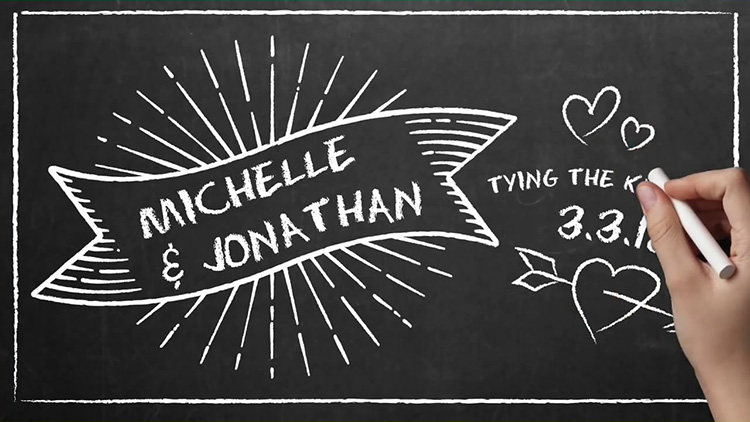 MICHELLE
& JONATHAN
TYING THE
3.3.